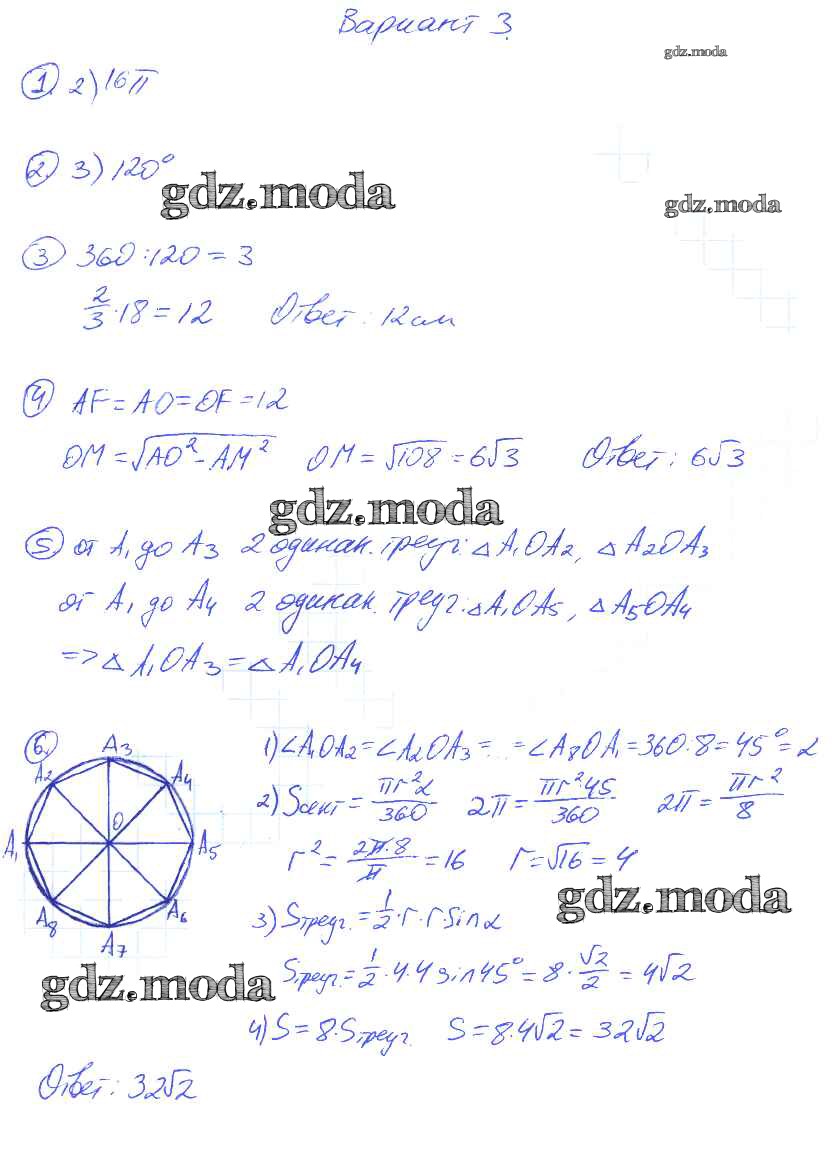 Вариант 3.
gdz.moda
1. 2) 16π
2. 3) 120°
gdz.moda
gdz.moda
3 360:120=3
2/3·18=12 Ответ: 12см
4 AF=AO=OF=12
OM=√AO²-AM² OM=√108=6√3 Ответ: 6√3
gdz.moda
5 от A₁ до A₃ 2 одинак. треуг: △A₁OA₂, △A₂OA₃
от A₁ до A₄ 2 одинак. треуг: △A₁OA₅, △A₅OA₄
=> △A₁OA₃=△A₁OA₄
6. 1) ∠A₁OA₂=∠A₂OA₃=...=∠A₈OA₁=360·8=45°=α
A₃
A₂
A₄
O
A₁
A₅
A₈
A₆
A₇
2) Sсект=πr²α/360 2π=πr²45/360 2π=πr²/8
r²=2π·8/π=16 r=√16=4
gdz.moda
3) Sтреуг.=1/2·r·r·sinα
Sтреуг.=1/2·4·4 sin45°=8·√2/2=4√2
gdz.moda
4) S=8·Sтреуг. S=8·4√2=32√2
Ответ: 32√2